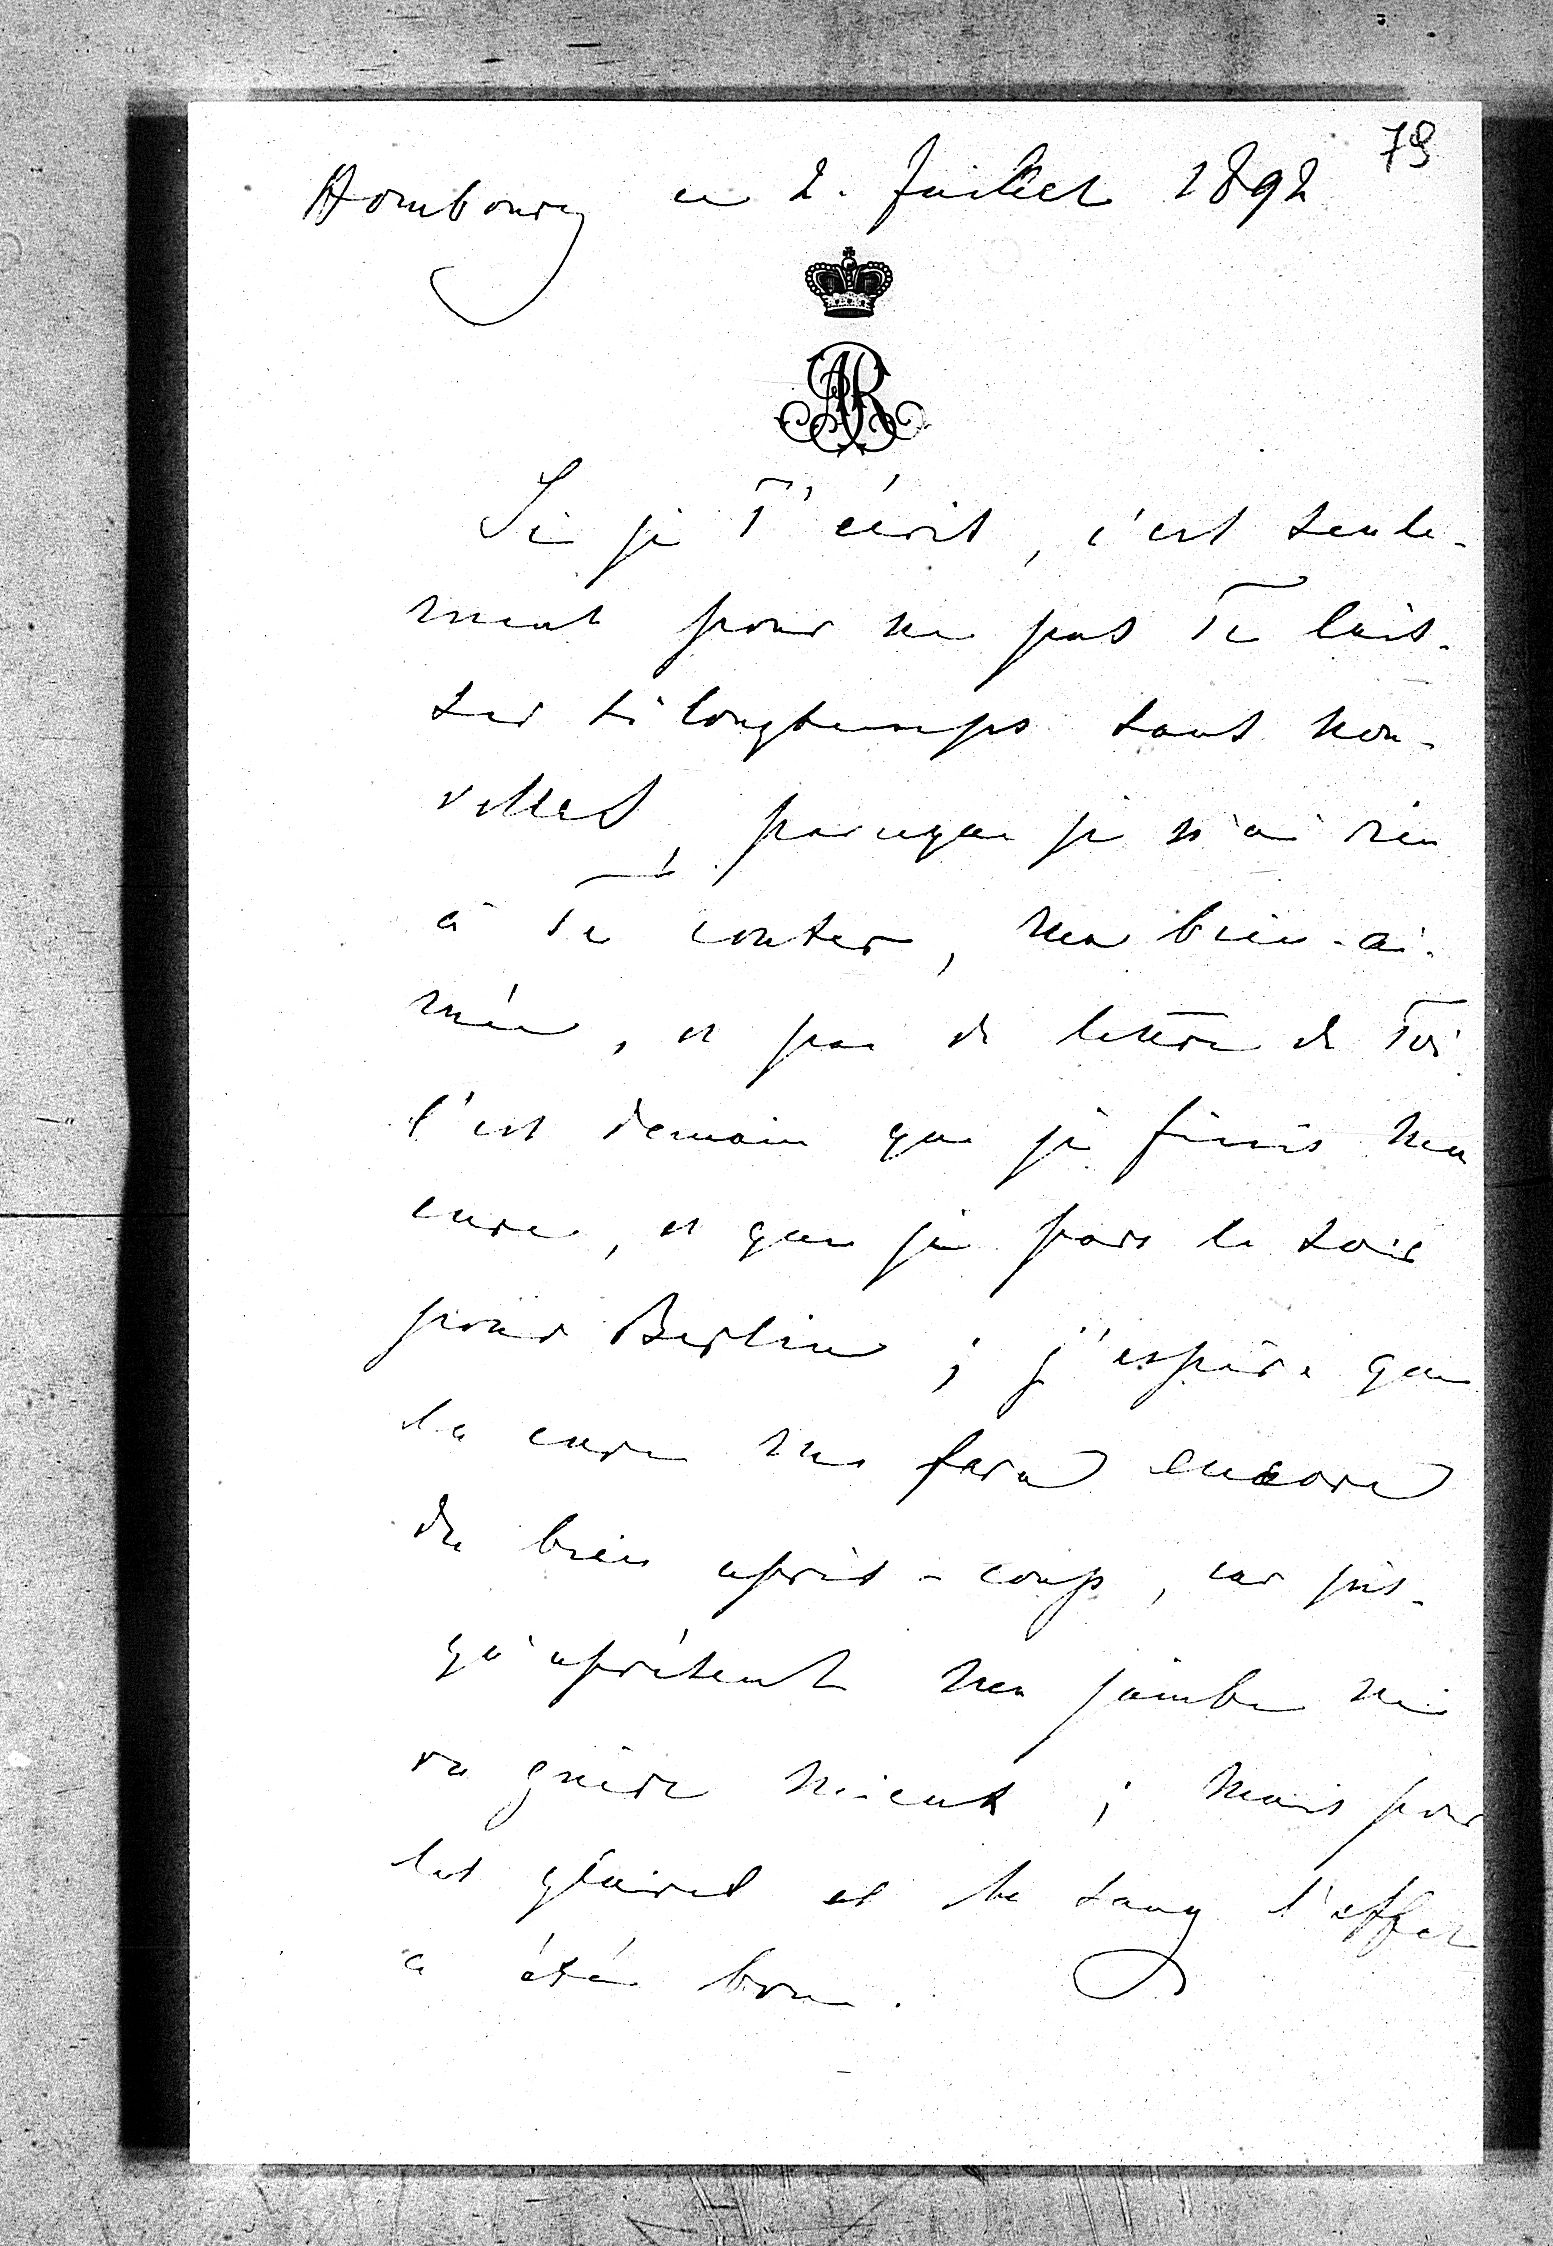 79
Hombourg ce 2. Juillet 1892
AR
Si je T'écris, c'est seule-
ment pour ne pas Te lais-
ser si longtemps sans nou-
velles, parceque je n'ai rien
à Te conter, ma bien-ai-
mée, et pas de lettre de Toi
C'est demain que je finis ma
cure, et que je pars le soir
pour Berlin ; j'espère que
la cure me fera encore
du bien après-coup, car jus-
qu'aprésent ma jambe ne
va guère mieux ; mais pour
les glaires et le sang l'effet
a été bon.